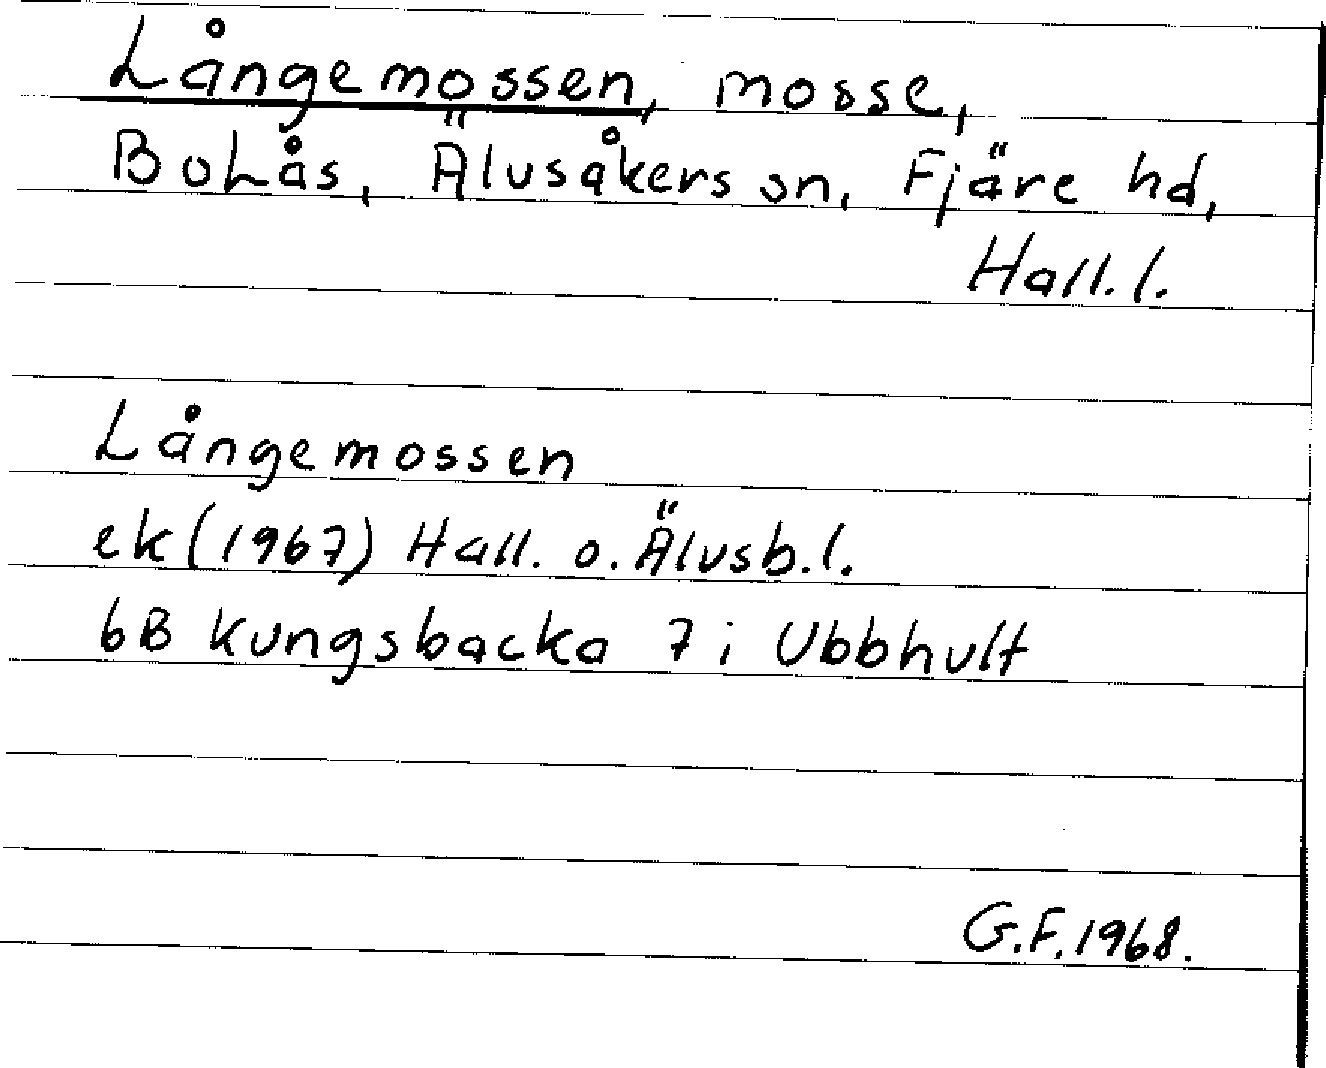 Långemossen, mosse,
Bohås, Älvsåkers sn, Fjäre hd,
Hall. l.
Långemossen
ek (1967) Hall. o. Älvsb. l.
6B Kungsbacka 7 i Ubbhult
G.F. 1968.